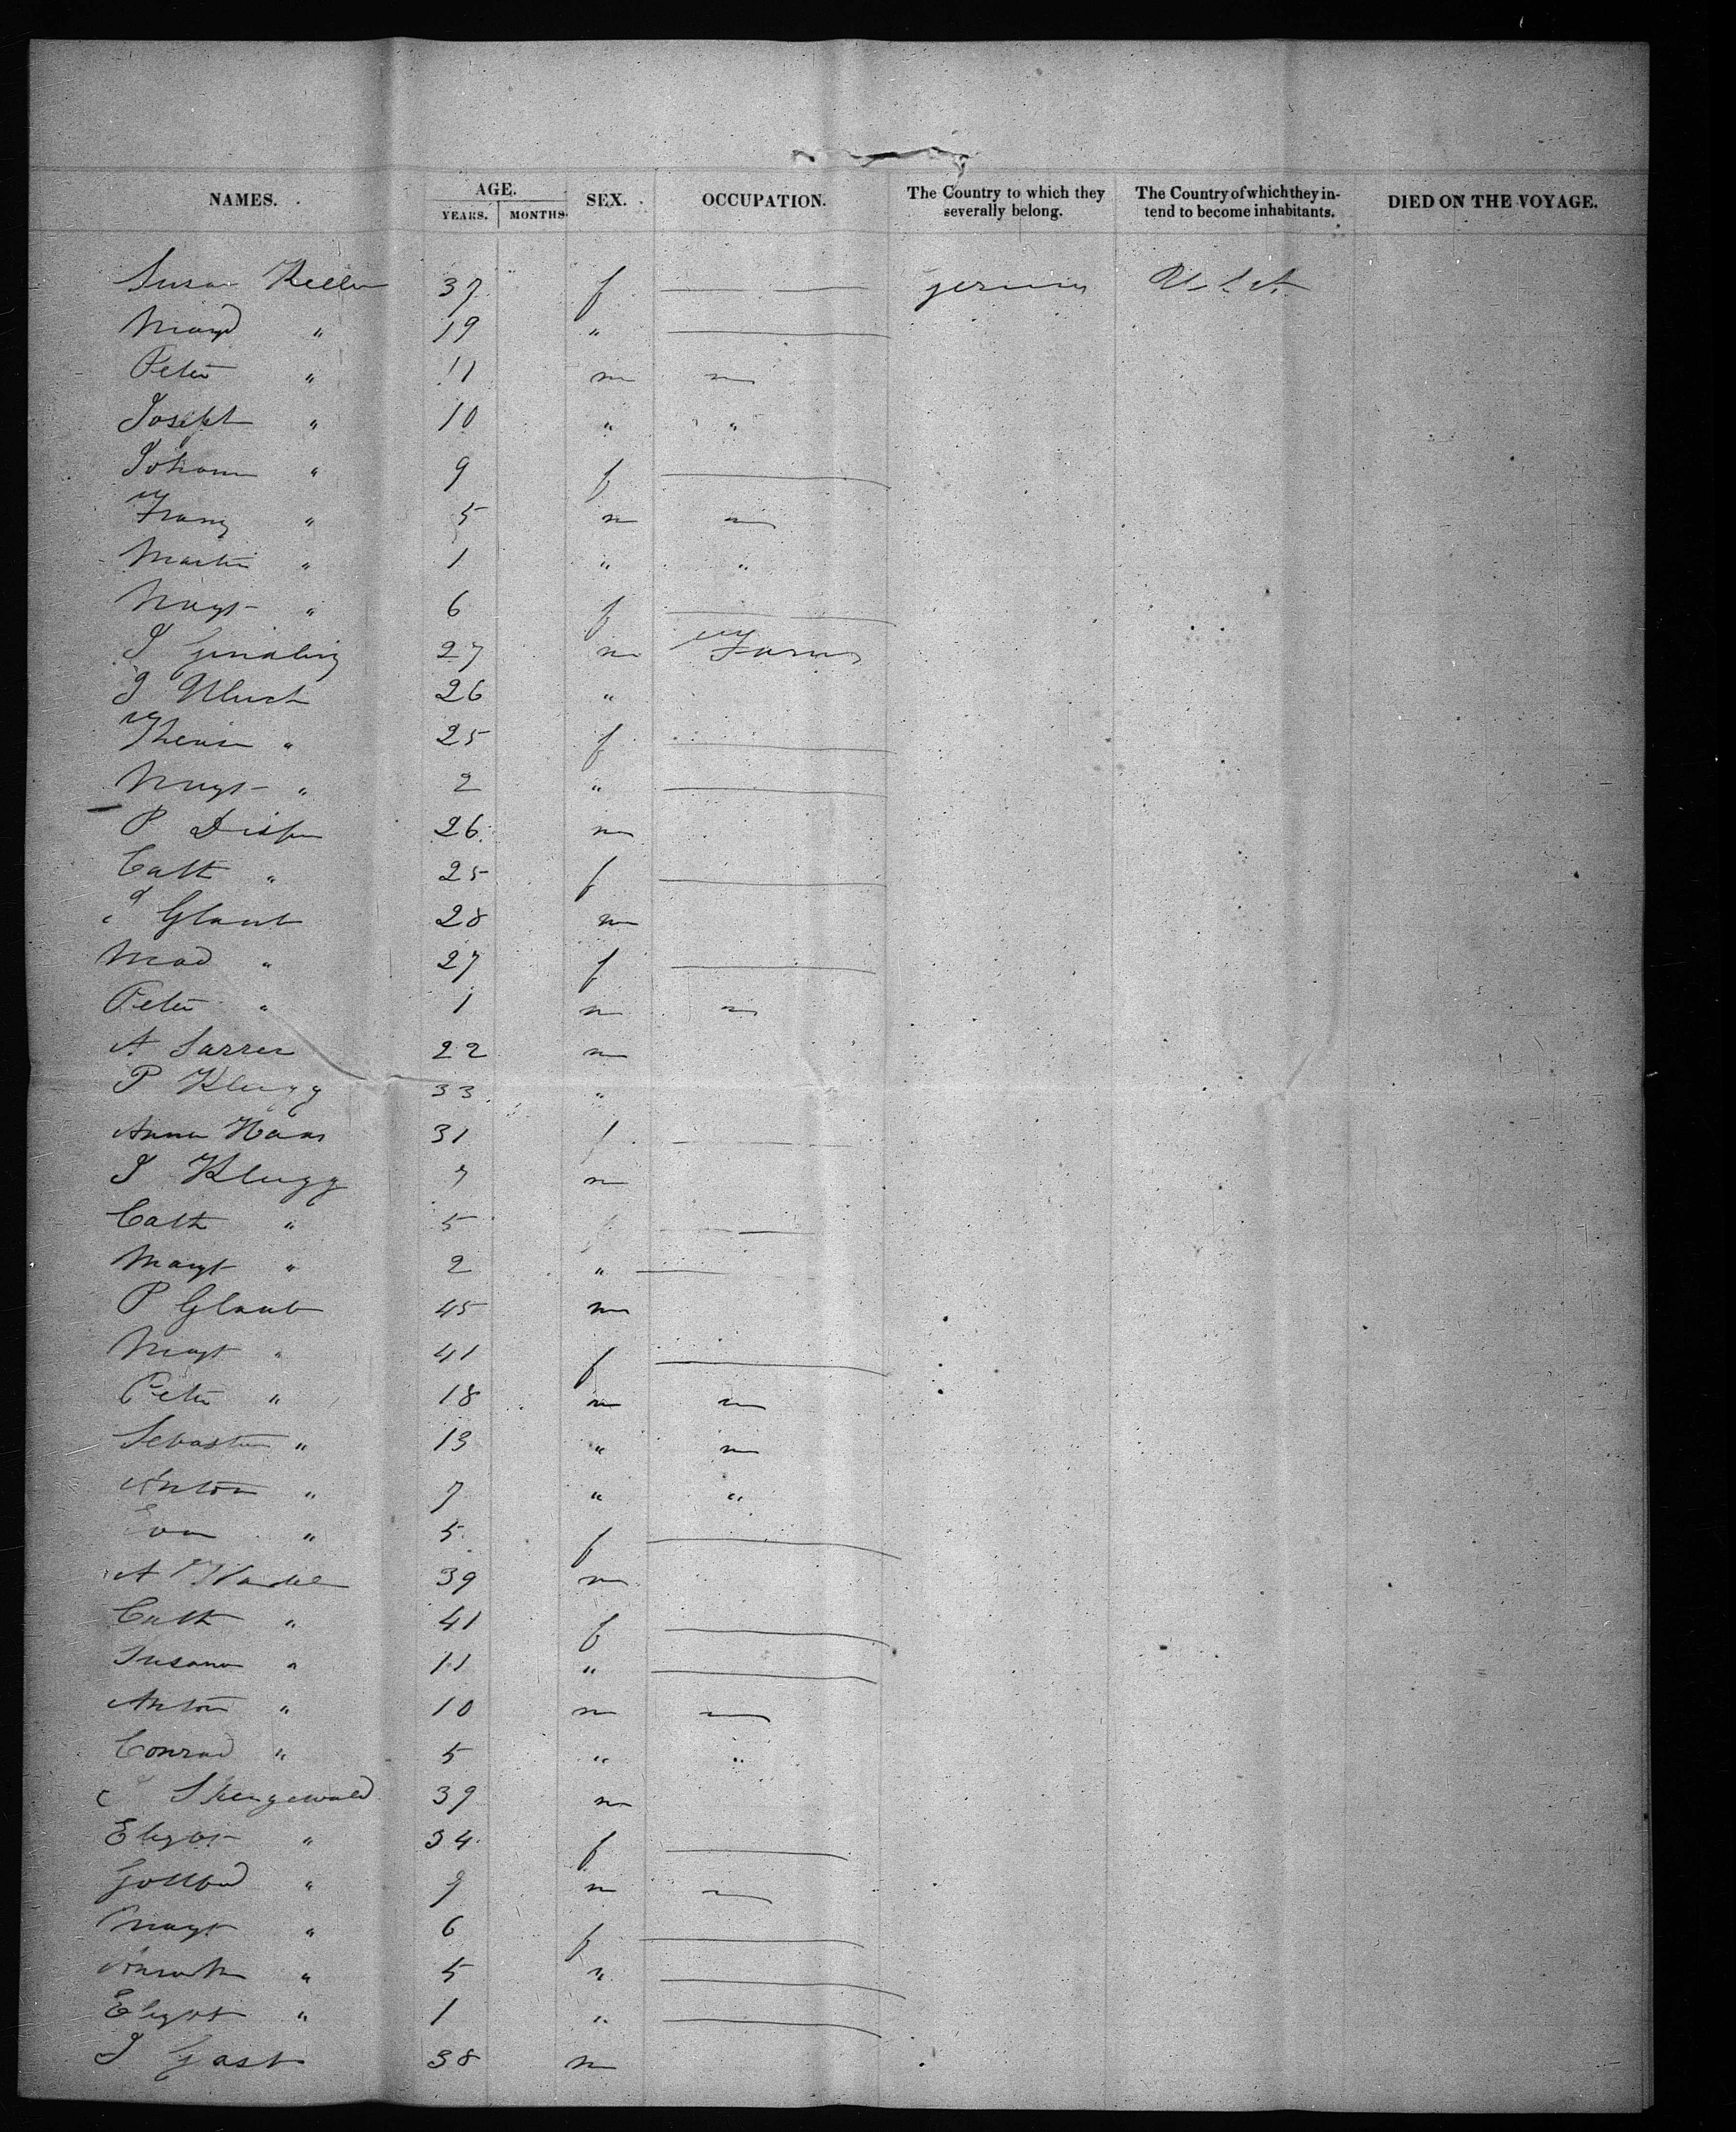 NAMES. AGE. SEX. OCCUPATION. The Country to which they severally belong. The Country of which they intend to become inhabitants. DIED ON THE VOYAGE.
YEARS. MONTHS.
Susan Keller 37 f germany U. S. A.
19 "
Peter " 11 m
Joseph " 10 " "
Johann " 9 f
Franz " 5 m
Martin " 1 " "
Magt " 6 f
J 27 m Farmer
J 26 "
" 25 f
Magt " 2 "
P 26 m
Cath " 25 f
Glaub 28 m
Mad " 27 f
Peter " 1 m
A Sarrer 22 m
P Klugg 33 "
Anna Haas 31 f
J Klugg 7 m
Cath " 5
Magt " 2 "
P Glaub 45 m
Magt " 41 f
Peter " 18 m
Sebastian " 13 "
Anton " 7 " "
Eva " 5 f
A 39 m
Cath " 41 f
Susana " 11 "
Anton " 10 m
Conrad " 5 " "
39 m
Elizbt " 34 f
" 9 m
Magt " 6 f
" 5 "
Elizbt " 1 "
J Gast 38 m